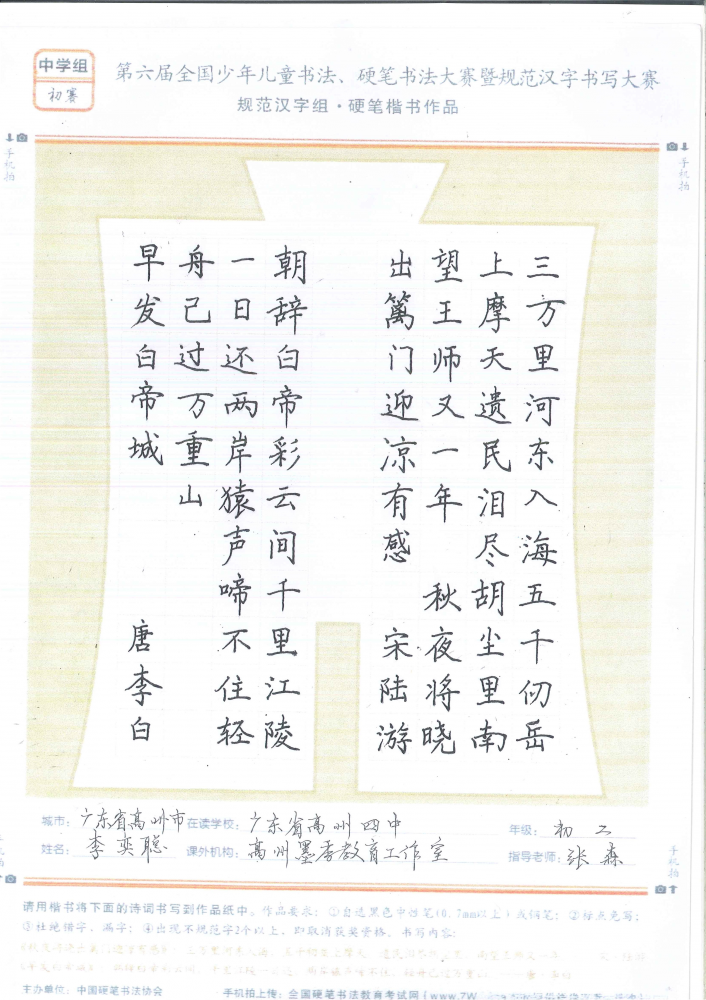 中学组
初赛
第六届全国少年儿童书法、硬笔书法大赛暨规范汉字书写大赛
规范汉字组·硬笔楷书作品
手机拍
手机拍
三万里河东入海五千仞岳
上摩天遗民泪尽胡尘里南
望王师又一年 秋夜将晓
出篱门迎凉有感 宋陆游
朝辞白帝彩云间千里江陵
一日还两岸猿声啼不住轻
舟已过万重山
早发白帝城 唐李白
城市：广东省高州市 在读学校：广东省高州四中 年级：初二
姓名：李奕聪 课外机构：高州墨香教育工作室 指导老师：张森
手机拍
请用楷书将下面的诗词书写到作品纸中。作品要求：①自选黑色中性笔(0.7mm以上)或钢笔；②标点免写；
③杜绝错字、漏字；④出现不规范字2个以上，即取消获奖资格。书写内容：
主办单位：中国硬笔书法协会 手机拍上传：全国硬笔书法教育考试网(www.ZW